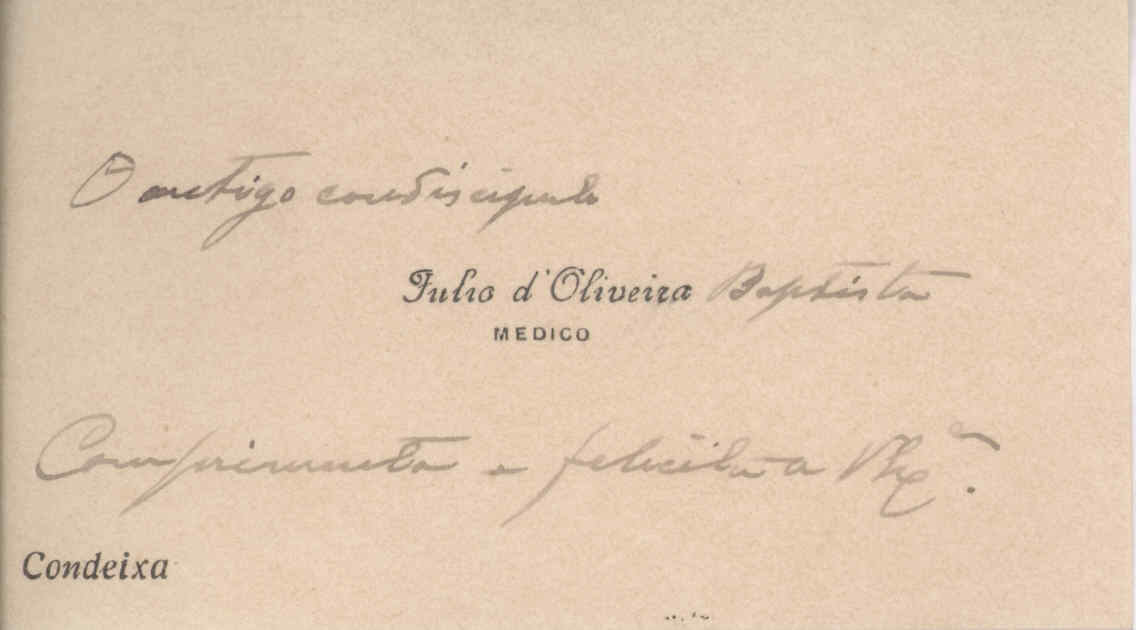 O antigo condiscipulo
Julio d'Oliveira Baptista
MEDICO
Comprimenta e felicita a V. Ex.ª
Condeixa